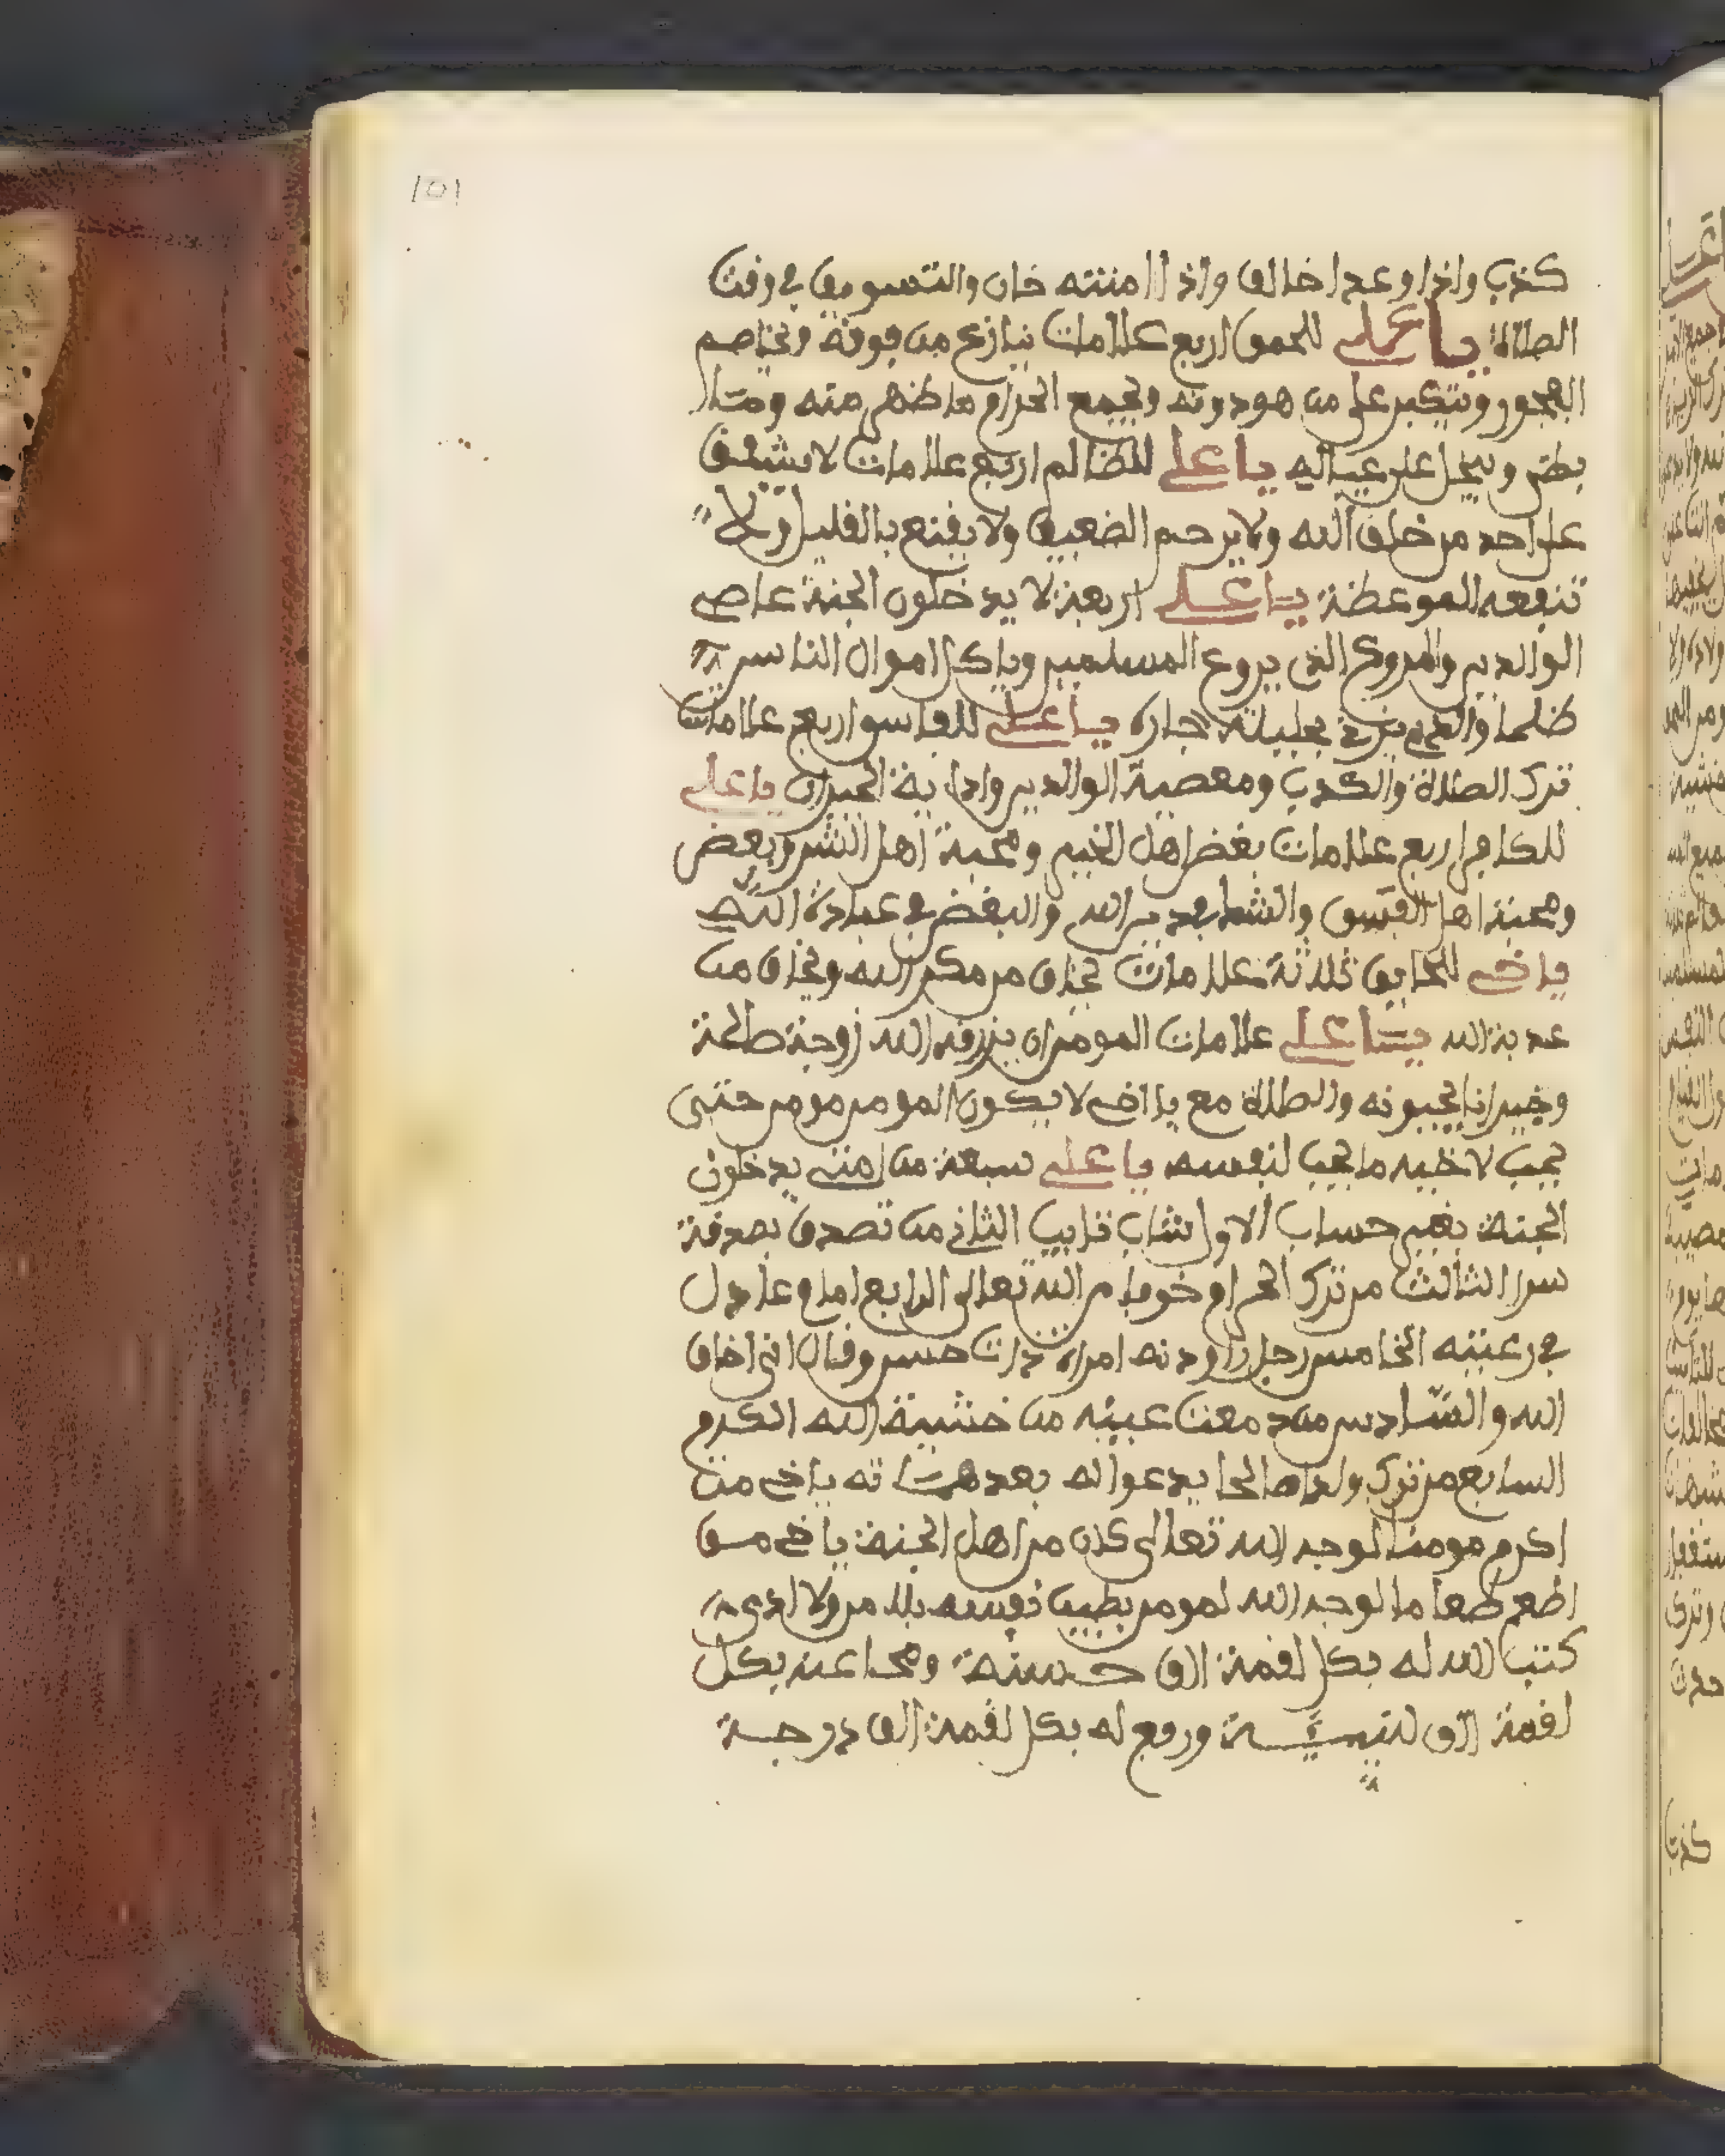 101
كذب واذا وعد اخالف واذا امنته خان والتسويف في وقت
الصلاة يا علي للحمق اربع علامات ينازع من فوقه ويخاصم
الفجور ويتكبر على من هو دونه ويجمع الحرام ما ظهر منه
ويبخل على عياله يا علي للظالم اربع علامات لا يشفق
على احد من خلق الله ولا يرحم الضعيف ولا يقنع بالقليل ولا
تنفعه الموعظة يا علي اربعة لا يدخلون الجنة عاصي
الوالدين والمروع الذي يروع المسلمين وياكل اموال الناس
ظلما والذي يزني بحليلة جاره يا علي للفاسق اربع علامات
ترك الصلاة والكذب ومعصية الوالدين واذاية الجيران يا علي
للكافر اربع علامات بغض اهل الخير ومحبة اهل الشر وبغض
ومحبة اهل الفسق والشك في دين الله والبغض في عبادة الله
يا اخي للخايف ثلاثة علامات يخاف من مكر الله ويخاف من
عذبة الله يا علي علامات المومن ان يرزقه الله زوجة صالحة
وجيرانا يحبونه والصلاة مع يا اخي لا يكون المومن مومن حتى
يحب لاخيه ما يحب لنفسه يا علي سبعة من امتي يدخلون
الجنة بغير حساب الاول شاب تايب الثاني من تصدق بصدقة
سرا الثالث من ترك الحرام خوفا من الله تعالى الرابع امام عادل
في رعيته الخامس رجل راودته امراة ذات حسن وقال اني اخاف
الله والسادس من دمعت عينه من خشية الله الكرم
السابع من ترك ولدا صالحا يدعوا له بعد يا اخي من
اكرم مومنا لوجه الله تعالى كان من اهل الجنة يا اخي من
اطعم طعاما لوجه الله لمومن بطيب نفسه بلا من ولا اذى
كتب الله له بكل لقمة الف حسنة ومحا عنه بكل
لقمة الف سيية ورفع له بكل لقمة الف درجة